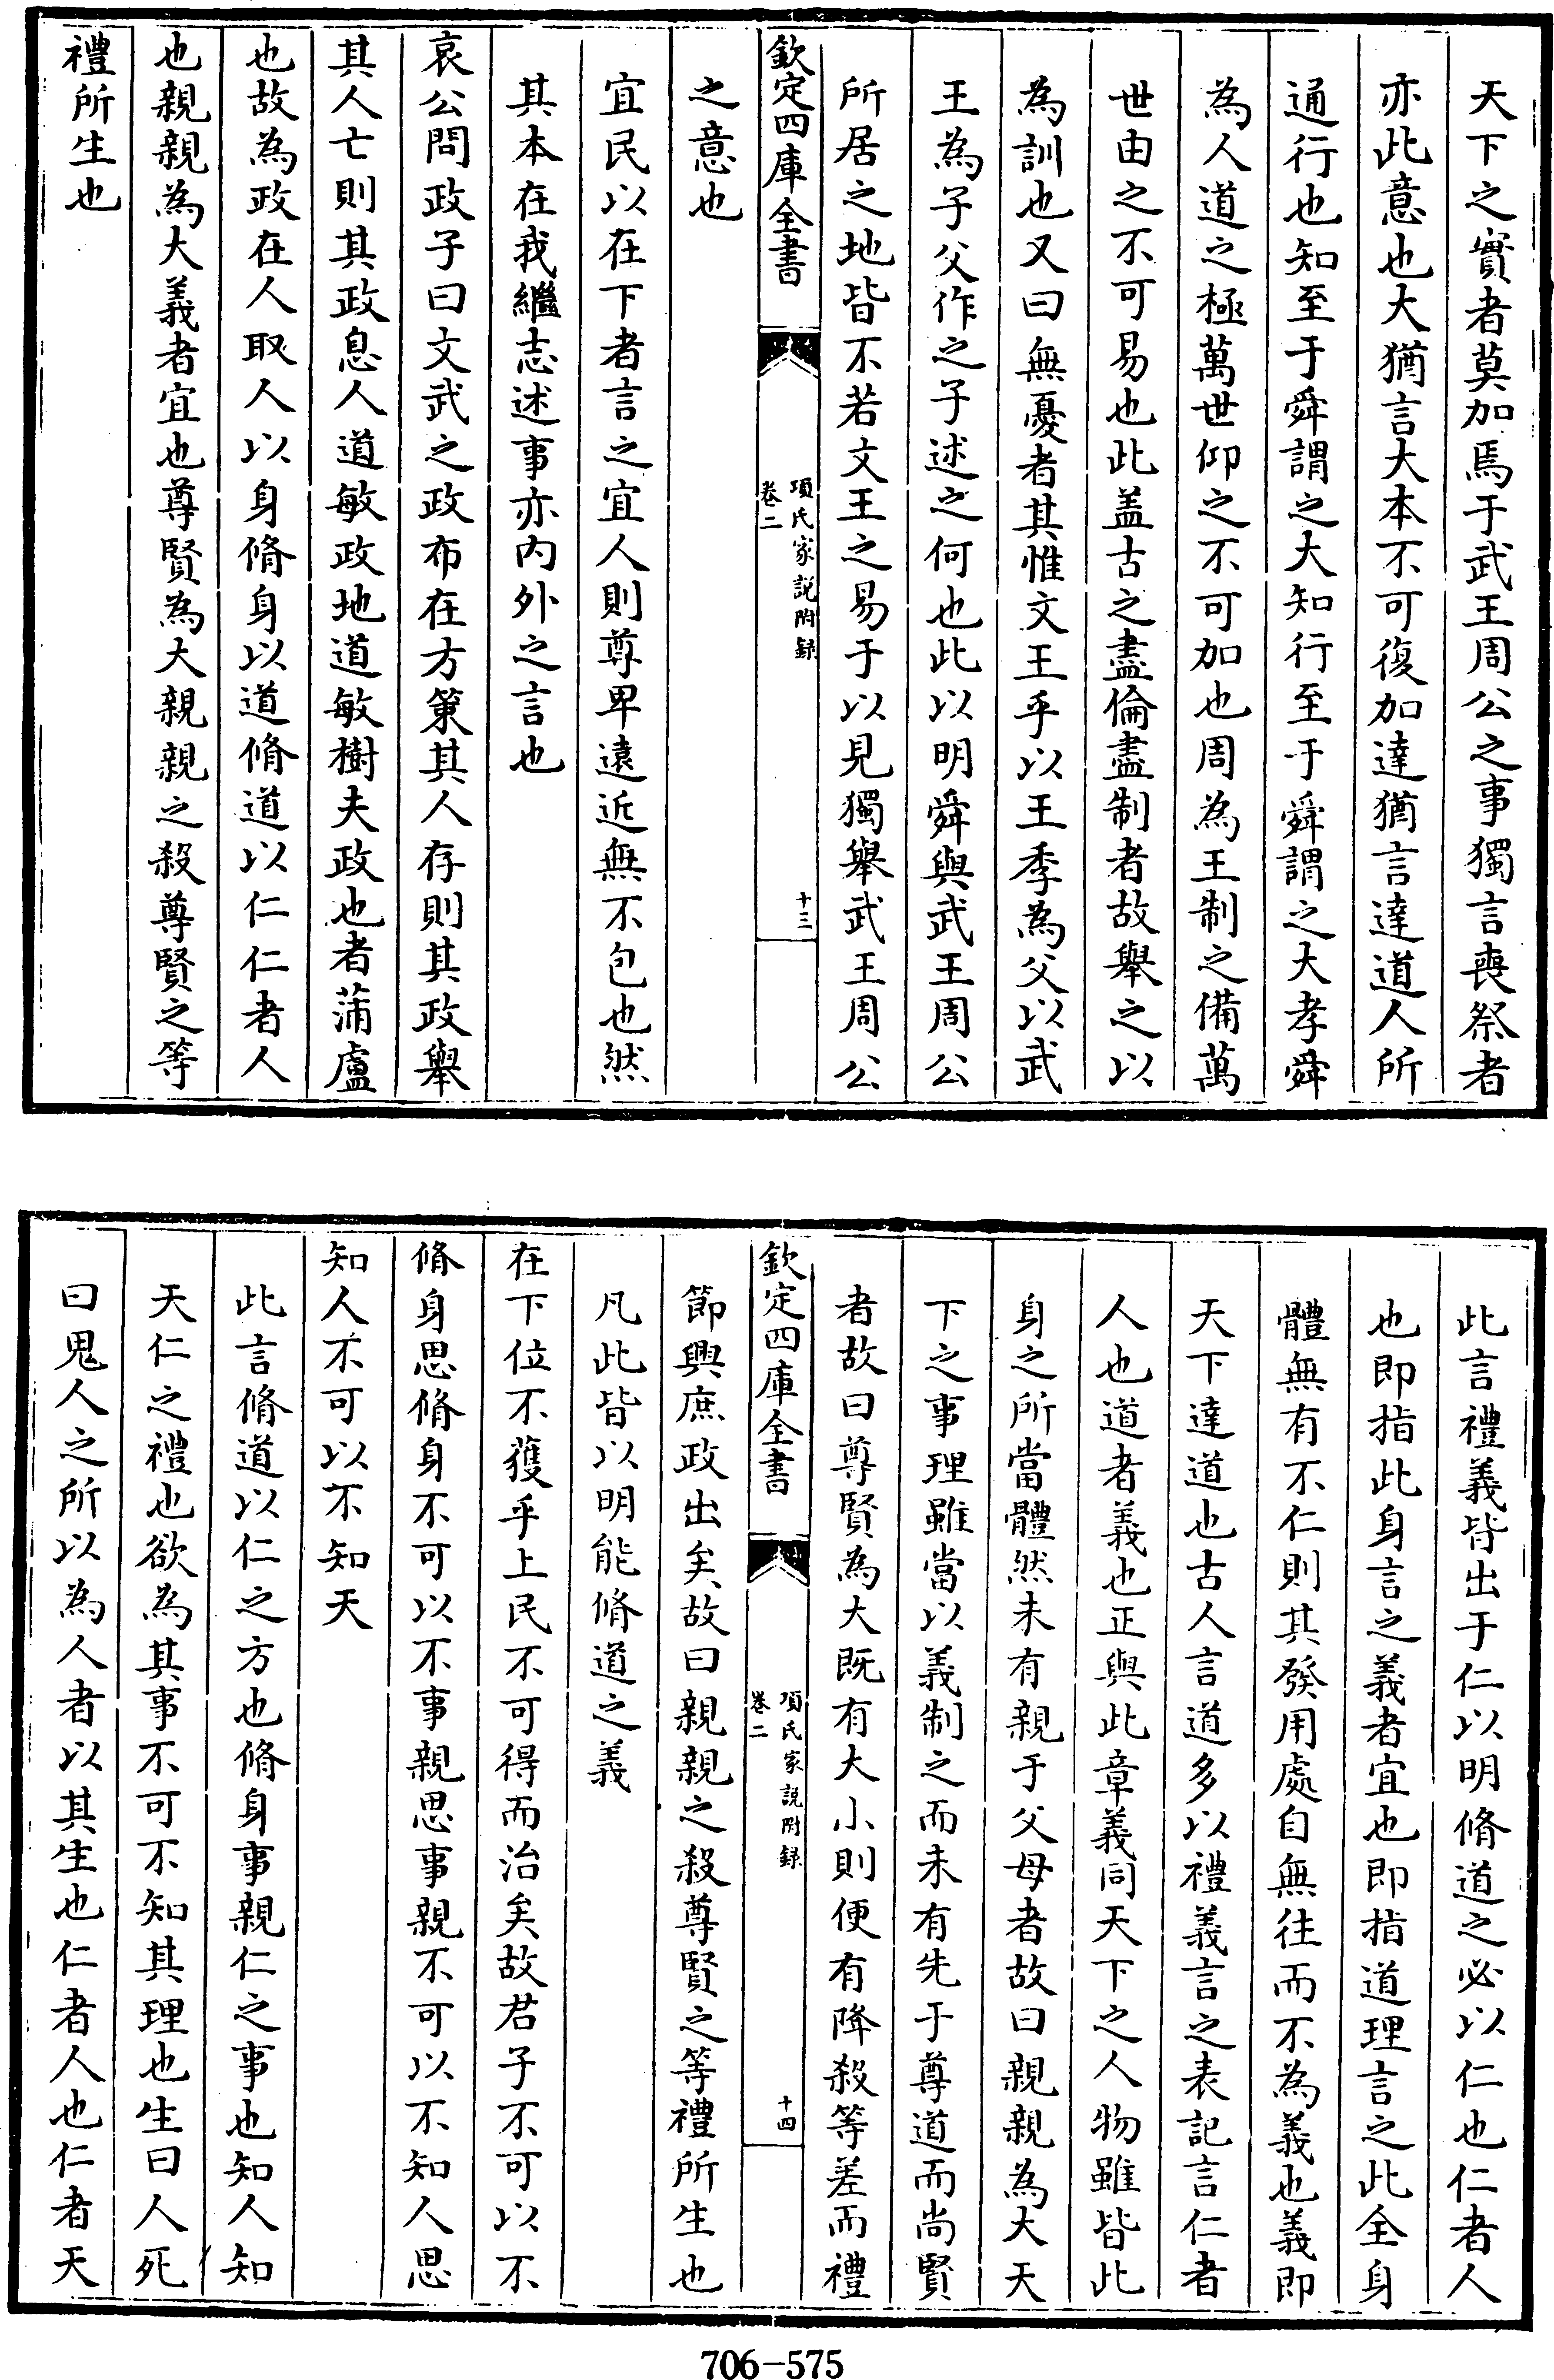 天下之實者莫加焉于武王周公之事獨言喪祭者
亦此意也大猶言大本不可復加達猶言達道人所
通行也知至于舜謂之大知行至于舜謂之大孝舜
為人道之極萬世仰之不可加也周為王制之備萬
世由之不可易也此盖古之盡倫盡制者故舉之以
為訓也又曰無憂者其惟文王乎以王季為父以武
王為子父作之子述之何也此以明舜與武王周公
所居之地皆不若文王之易于以見獨舉武王周公
欽定四庫全書
項氏家說附録
卷二
十三
之意也
宜民以在下者言之宜人則尊卑遠近無不包也然
其本在我繼志述事亦内外之言也
哀公問政子曰文武之政布在方策其人存則其政舉
其人亡則其政息人道敏政地道敏樹夫政也者蒲盧
也故為政在人取人以身脩身以道脩道以仁仁者人
也親親為大義者宜也尊賢為大親親之殺尊賢之等
禮所生也
此言禮義皆出于仁以明脩道之必以仁也仁者人
也即指此身言之義者宜也即指道理言之此全身
體無有不仁則其發用處自無往而不為義也義即
天下達道也古人言道多以禮義言之表記言仁者
人也道者義也正與此章義同天下之人物雖皆此
身之所當體然未有親于父母者故曰親親為大天
下之事理雖當以義制之而未有先于尊道而尚賢
者故曰尊賢為大既有大小則便有降殺等差而禮
欽定四庫全書
項氏家說附録
卷二
十四
節興庶政出矣故曰親親之殺尊賢之等禮所生也
凡此皆以明能脩道之義
在下位不獲乎上民不可得而治矣故君子不可以不
脩身思脩身不可以不事親思事親不可以不知人思
知人不可以不知天
此言脩道以仁之方也脩身事親仁之事也知人知
天仁之禮也欲為其事不可不知其理也生曰人死
曰鬼人之所以為人者以其生也仁者人也仁者天
706-575